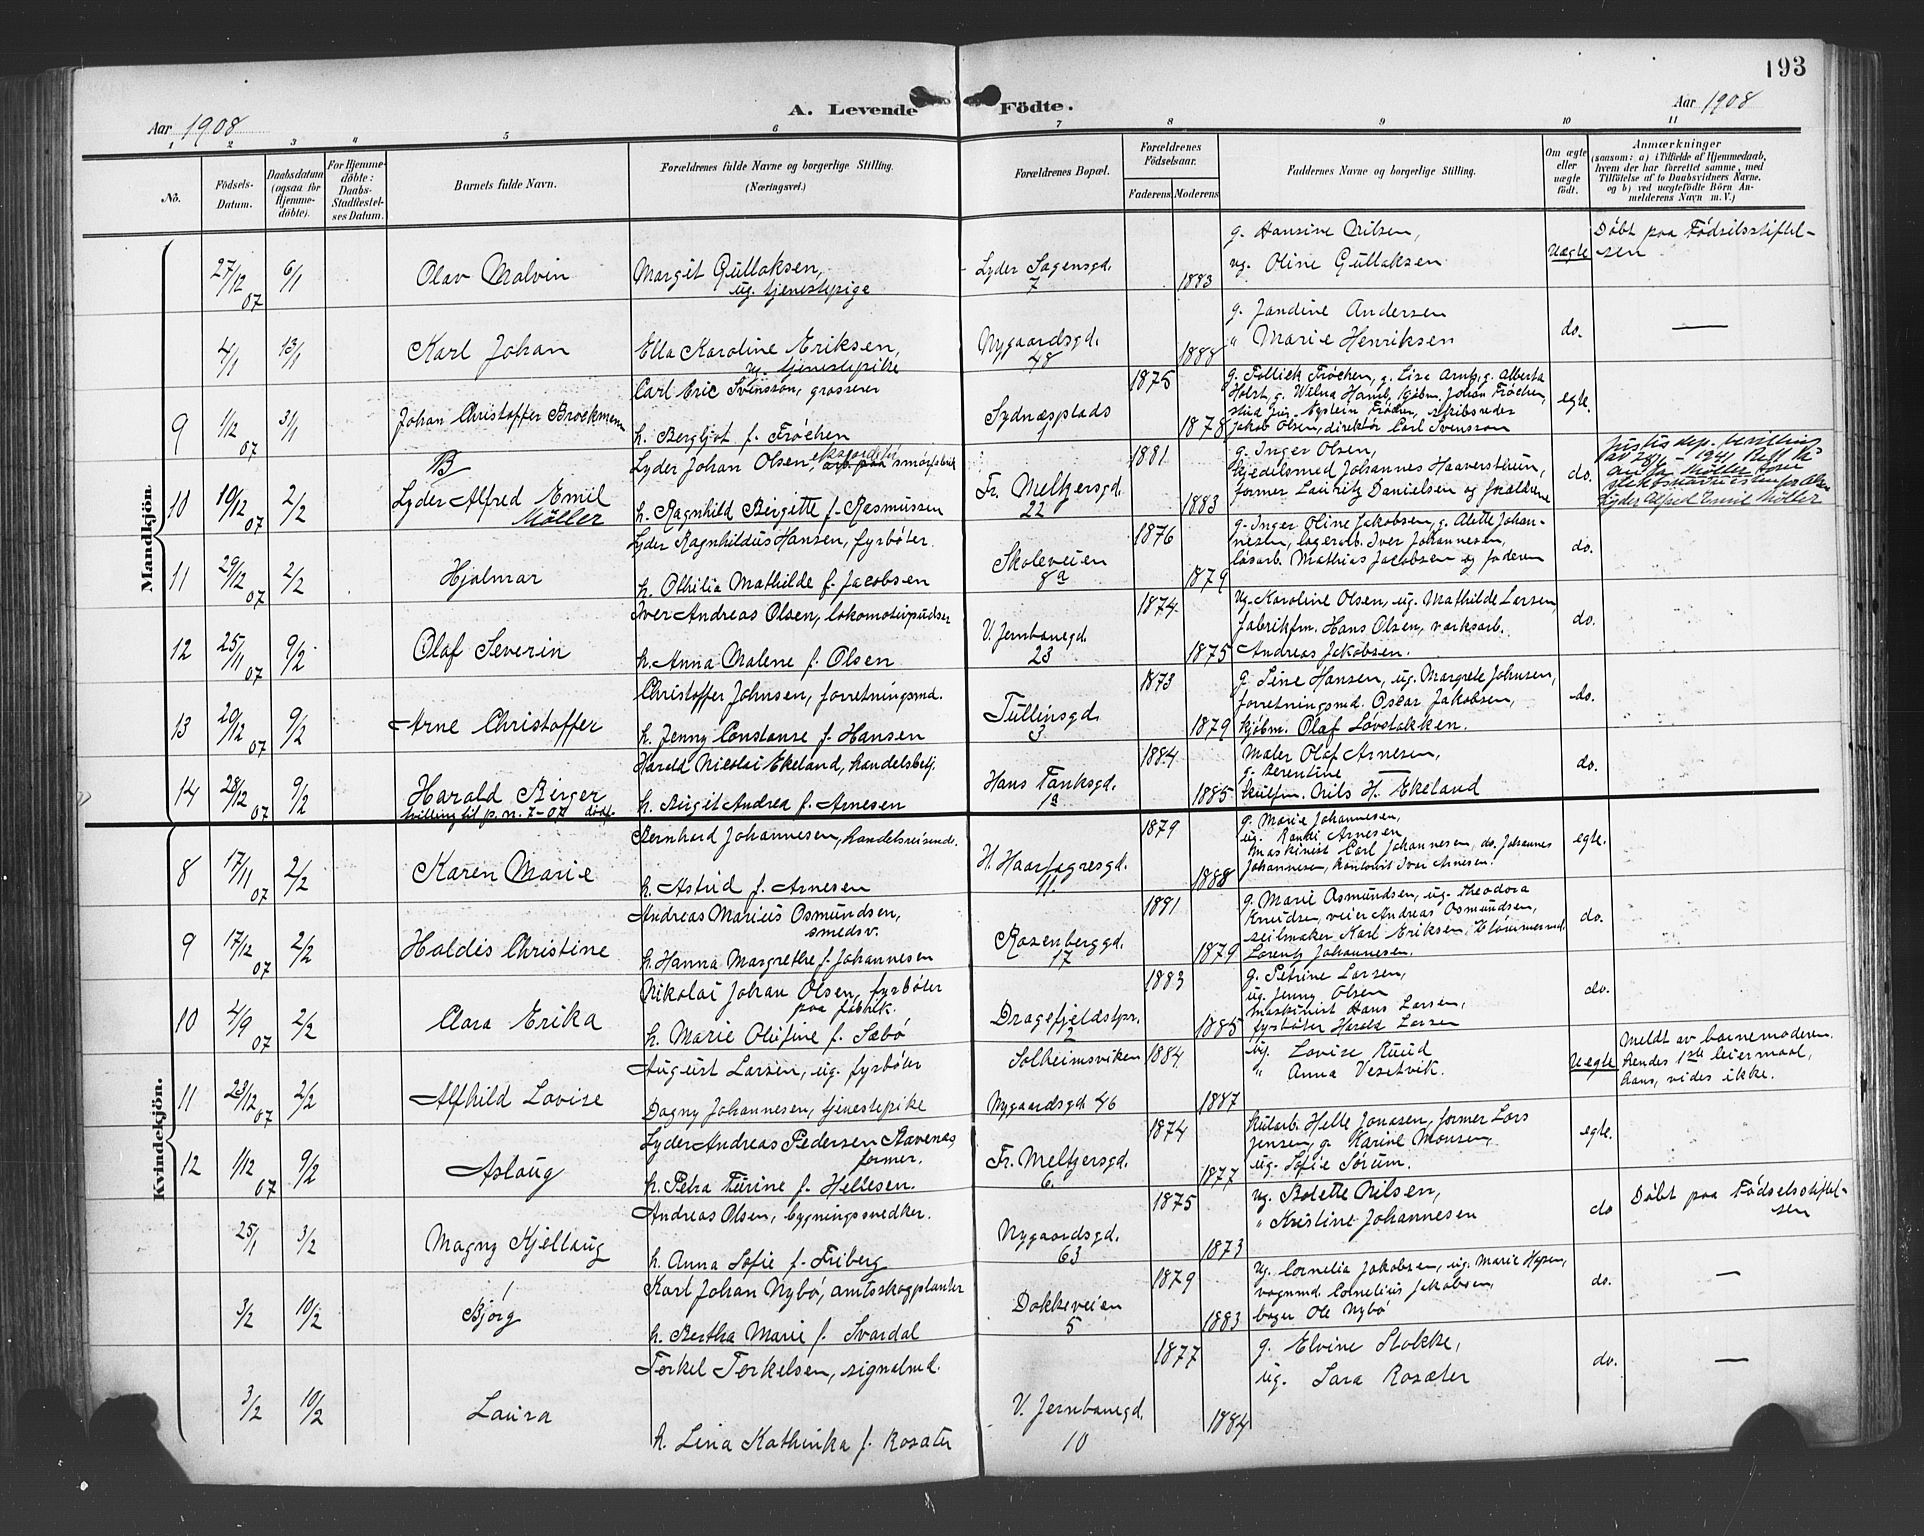 193
Aar 1908
A. Levende Födte.
Aar 1908
1 2 3 4 5 6 7 8 9 10 11
No.
Födsels-
Datum.
Daabsdatum
(ogsaa for
Hjemme-
döbte).
For Hjemme-
döbte:
Daabs-
Stadfæstel-
ses Datum.
Barnets fulde Navn.
Forældrenes fulde Navne og borgerlige Stilling.
(Næringsvei.)
Forældrenes Bopæl.
Forældrenes
Födselsaar.
Faderens Moderens
Faddernes Navne og borgerlige Stilling.
Om ægte
eller
uægte
födt.
Anmærkninger
(saasom: a) i Tilfælde af Hjemmedaab,
hvem der har forrettet samme, med
Tilföielse af to Daabsvidners Navne,
og b) ved uægtefödte Börn An-
melderens Navn m. V.)
Mandkjön.
27/12 07 6/1 Olav Malvin
Margit Gullaksen,
ug. tjenestepige
Lyder Sagensgd.
7
1883
g. Hansine Nilsen,
ug. Oline Gullaksen
Uægte
Døbt paa Fødselsstiftel-
sen
4/1 13/1 Karl Johan
Ella Karoline Eriksen,
ug. tjenestepike
Nygaardsgd.
48
1888
g. Jandine Andersen
" Marie Henriksen
do. —
9 1/12 07 3/1 Johan Christoffer Brockmann
Carl Eric Svensson, grosserer
h. Bergljot f. Frøchen
Sydnæsplads
1
1875
1878
g. Follick Frøchen, g. Lise Arntz, g. Alberta
Holst, g. Wilna Hamb, kjøbm. Johan Frøchen,
stud. jur. Eystein Frøchen, skibsreder
Jakob Olsen, direktør Carl Svensson
egte.
B
10 19/12 07 2/2 Lyder Alfred Emil
Møller
Lyder Johan Olsen, arb. paa smørfabrik
h. Ragnhild Birgitte f. Rasmussen
Fr. Meltzersgd.
22
1881
1883
g. Inger Olsen,
kjedelsmed Johannes Haaverstrun,
former Lauritz Danielsen og forældrene
do.
Justisdep. bevilling
av 28/1 - 1941 Rett til
aa ta Møller som
slektsnavn
Lyder Alfred Emil Møller
11 29/12 07 2/2 Hjalmar
Lyder Ragnhildus Hansen, fyrbøter.
h. Othilia Mathilde f. Jacobsen
Skoleveien
8a
1876
1879
g. Inger Oline Jakobsen, g. Alette Johan-
nesen, lagerarb. Iver Johannesen,
løsarb. Mathias Jacobsen og faderen
do.
12 25/11 07 9/2 Olaf Severin
Iver Andreas Olsen, lokomotivpudser
h. Anna Malene f. Olsen
V. Jernbanegd.
23
1874
1875
ug. Karoline Olsen, ug. Mathilde Larsen,
fabrikfm. Hans Olsen, værksarb.
Andreas Jakobsen.
do.
13 20/12 07 9/2 Arne Christoffer
Christoffer Johnsen, forretningsmd.
h. Jenny Constanse f. Hansen
Tullinsgd.
3
1873
1879
g. Sine Hansen, ug. Margrete Johnsen,
forretningsmd. Oscar Jakobsen,
kjøbm. Olaf Løvstakken.
do.
14 28/12 07 9/2 Harald Birger
Harald Nicolai Ekeland, handelsbetj.
h. Birgit Andrea f. Arnesen
Hans Tanksgd.
1a
1884
1885
Maler Olaf Arnesen,
g. Berentine
skulfm. Nils H. Ekeland
do.
Kvindekjön.
8 17/11 07 2/2 Karen Marie
Bernhard Johannesen, handelsreisende.
h. Astrid f. Arnesen
H. Haarfagresgd.
11.
1879
1888
g. Marie Johannesen,
ug. Ranki Arnesen
maskinist Carl Johannesen, do. Johannes
Johannesen, kontorist Ivar Arnesen.
egte.
9 17/12 07 2/2 Haldis Christine
Andreas Marius Osmundsen,
smedsv.
h. Hanna Margrethe f. Johannesen
Rosenberggd.
17
1891
1879
g. Marie Osmundsen, ug. Theodora
Knudsen, veier Andreas Osmundsen,
seilmaker Karl Eriksen, tømmermd.
Lorentz Johannesen.
do.
10 4/9 07 2/2 Clara Erika
Nikolai Johan Olsen, fyrbøter
paa fabrik.
h. Marie Olufine f. Sæbø
Dragefjeldstpr.
2
1883
1885
g. Petrine Larsen,
ug. Jenny Olsen
maskinist Hans Larsen,
fyrbøter Harald Larsen
do.
11 23/12 07 2/2 Alfhild Lovise
August Larsen, ug. fyrbøter
Dagny Johannesen, tjenestepike
Solheimsviken
Nygaardsgd. 46
1884.
1887
ug. Lovise Ruud
" Anna Vesetvik.
Uægte
Meldt av barnemoderen.
Hendes 1ste leiermaal,
hans, vides ikke.
12 1/12 07 9/2 Aslaug
Lyder Andreas Pedersen Stavenes,
former.
h. Petra Turine f. Hellesen.
Fr. Meltzersgd.
6.
1874
1877
kularb. Helle Jonasen, former Lars
Jensen, g. Karine Monsen,
ug. Sofie Sørum.
egte.
25/1 3/2 Magny Kjellaug
Andreas Olsen, bygningssnedker.
h. Anna Sofie f. Friberg
Nygaardsgd.
63
1875
1873
ug. Bolette Nilsen,
" Kristine Johannesen
do
Døbt paa Fødselsstiftel-
sen
3/2 10/2 Bjørg
Karl Johan Nybø, amtsskogplanter
h. Bertha Marie f. Svardal
Dokkeveien
5
1879
1883
ug. Cornelia Jakobsen, ug. Marie Hopen,
vognmd. Cornelius Jakobsen,
bager Ole Nybø
do. —
3/2 10/2 Laura
Terkel Terkelsen, signalmd.
h. Lina Kathinka f. Rosæter
V. Jernbanegd.
10
1877
1884
g. Elvine Stokke,
ug. Sara Rosæter
do. —